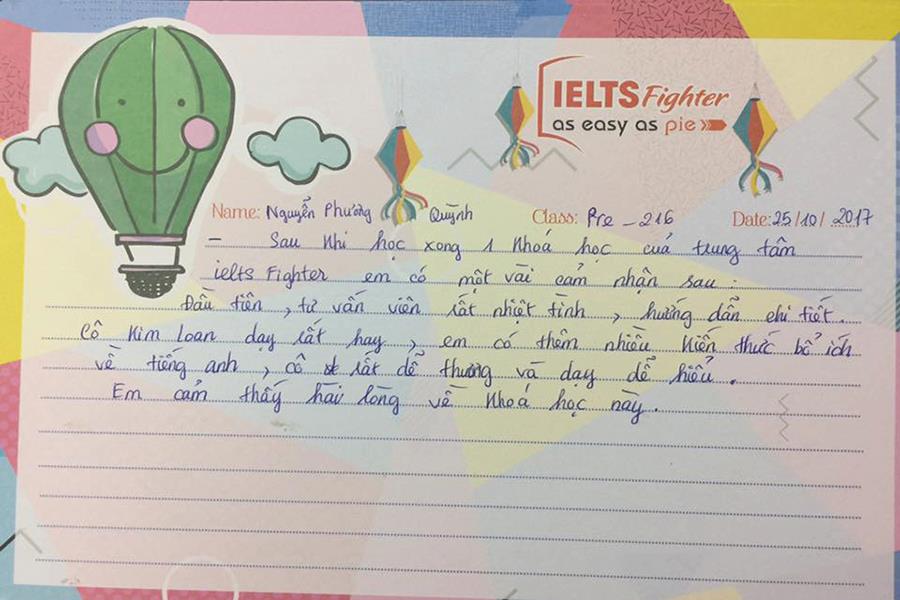 IELTS Fighter
as easy as pie
Name: Nguyễn Phương Quỳnh Class: Pre - 216 Date: 25/10/2017
- Sau khi học xong 1 khoá học của trung tâm
ielts Fighter em có một vài cảm nhận sau:
Đầu tiên, tư vấn viên rất nhiệt tình, hướng dẫn chi tiết.
Cô Kim Loan dạy rất hay, em có thêm nhiều kiến thức bổ ích
về tiếng anh, cô rất dễ thương và dạy dễ hiểu.
Em cảm thấy hài lòng về khoá học này.